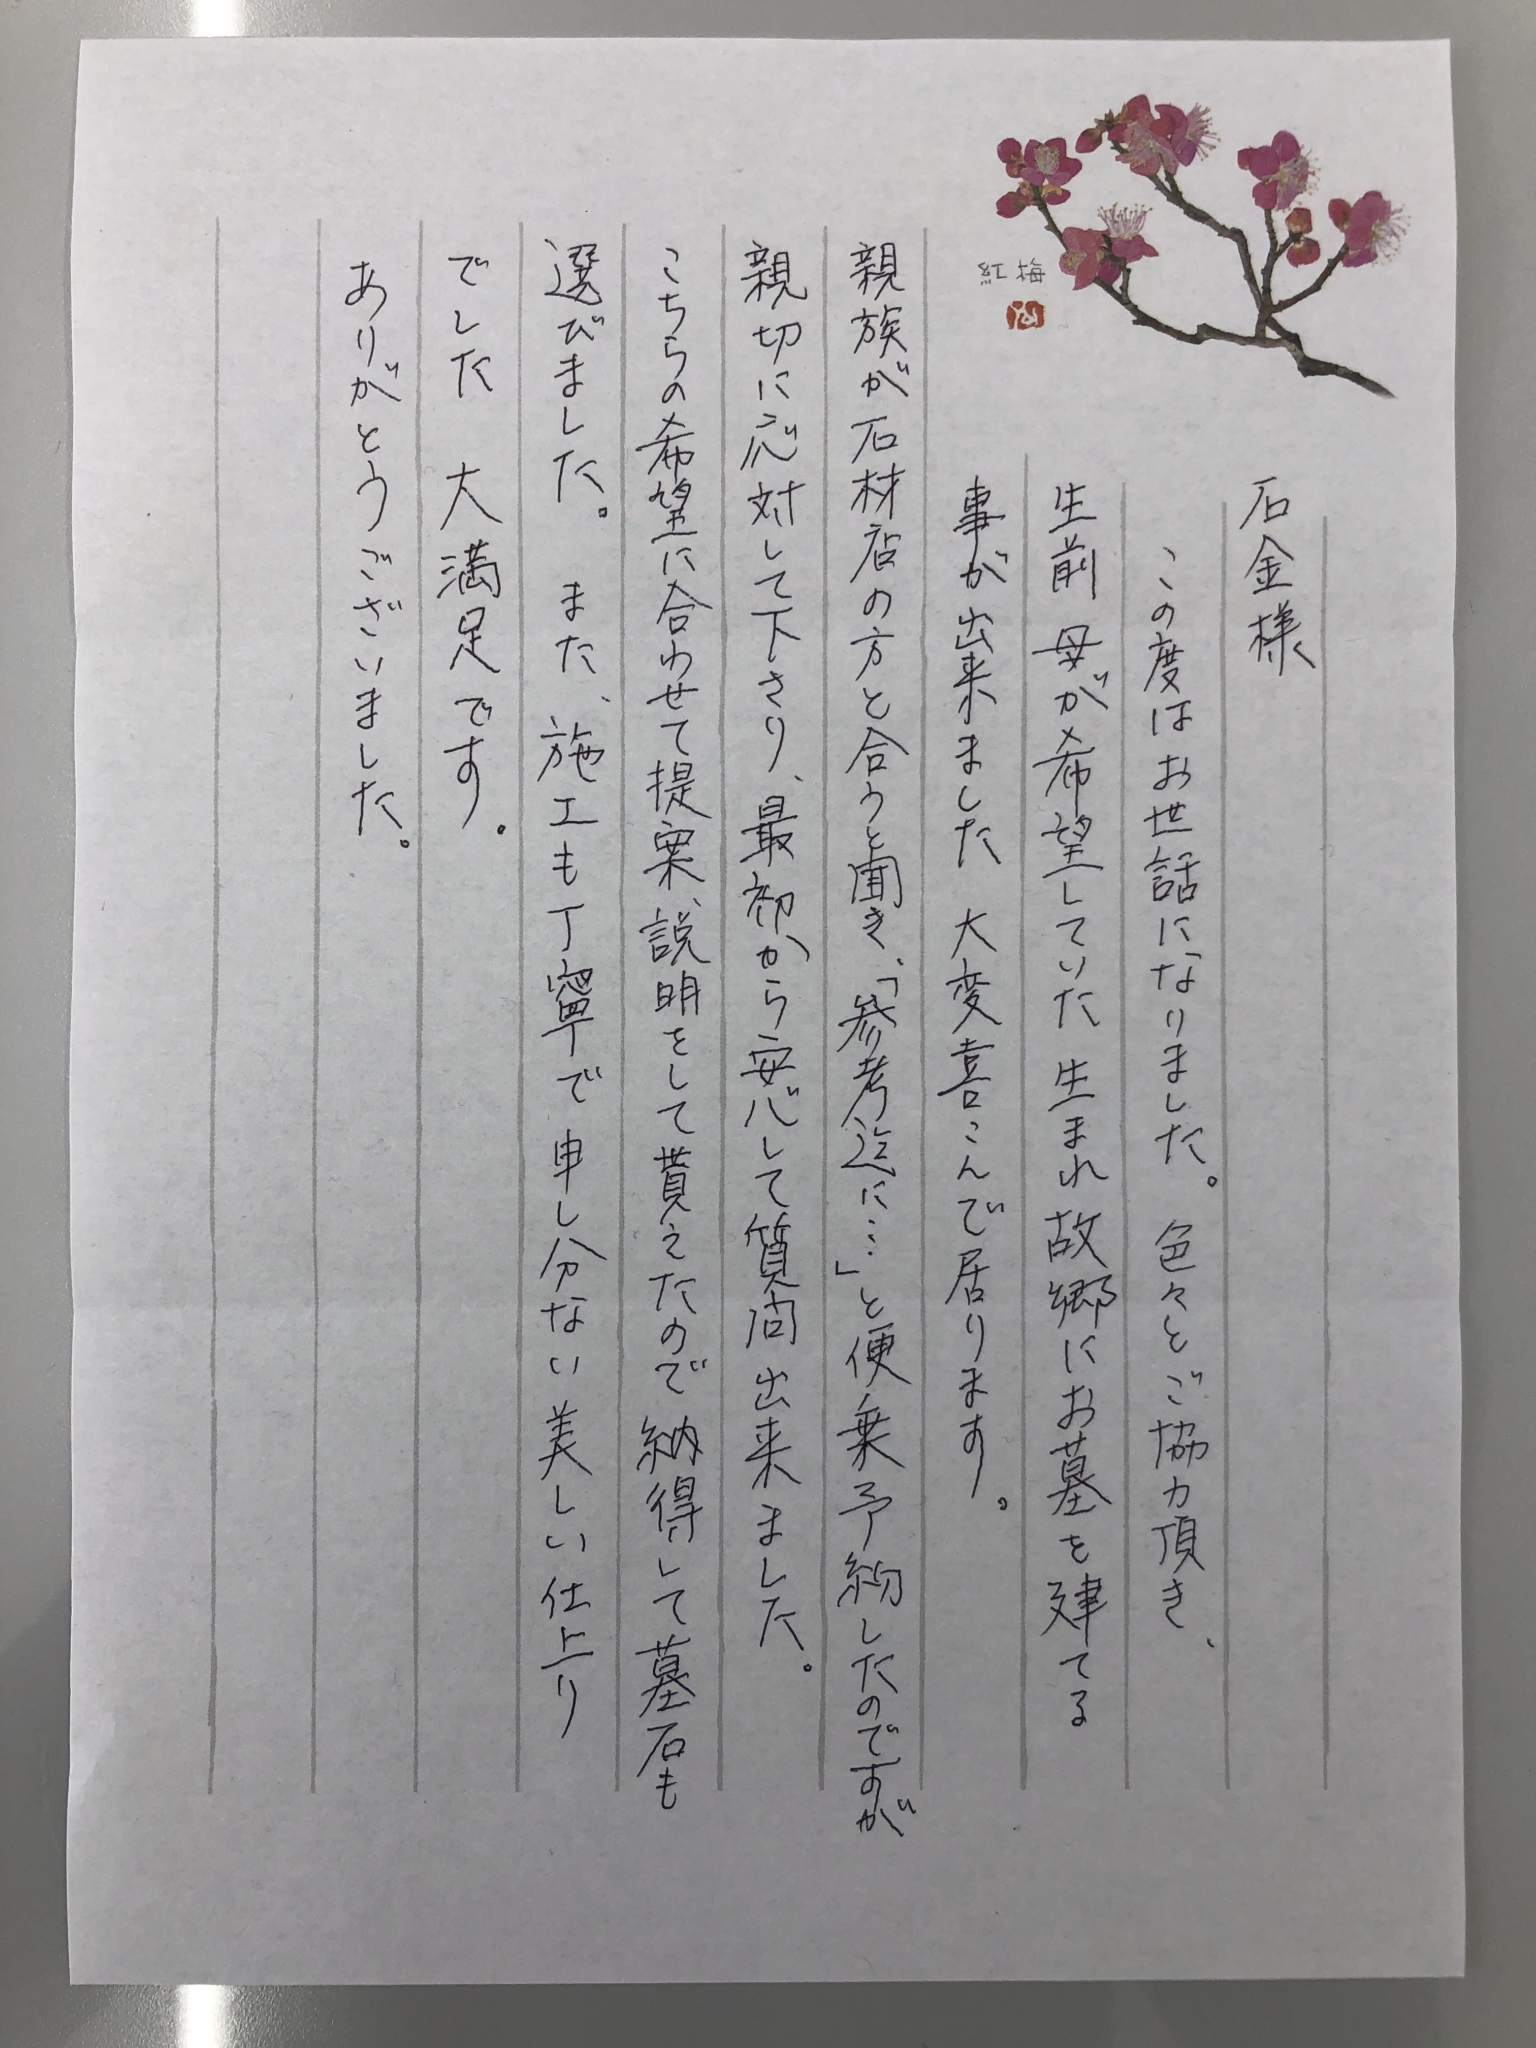 紅梅
石金様
この度はお世話になりました。色々とご協力頂き、
生前 母が希望していた 生まれ故郷にお墓を建てる
事が出来ました 大変喜こんで居ります。
親族が石材店の方と合うと聞き、「参考迄に…」と便乗予約したのですが
親切に応対して下さり、最初から安心して質問出来ました。
こちらの希望に合わせて提案、説明をして貰えたので納得して墓石も
選びました。また、施工も丁寧で申し分ない美しい仕上り
でした 大満足です。
ありがとうございました。